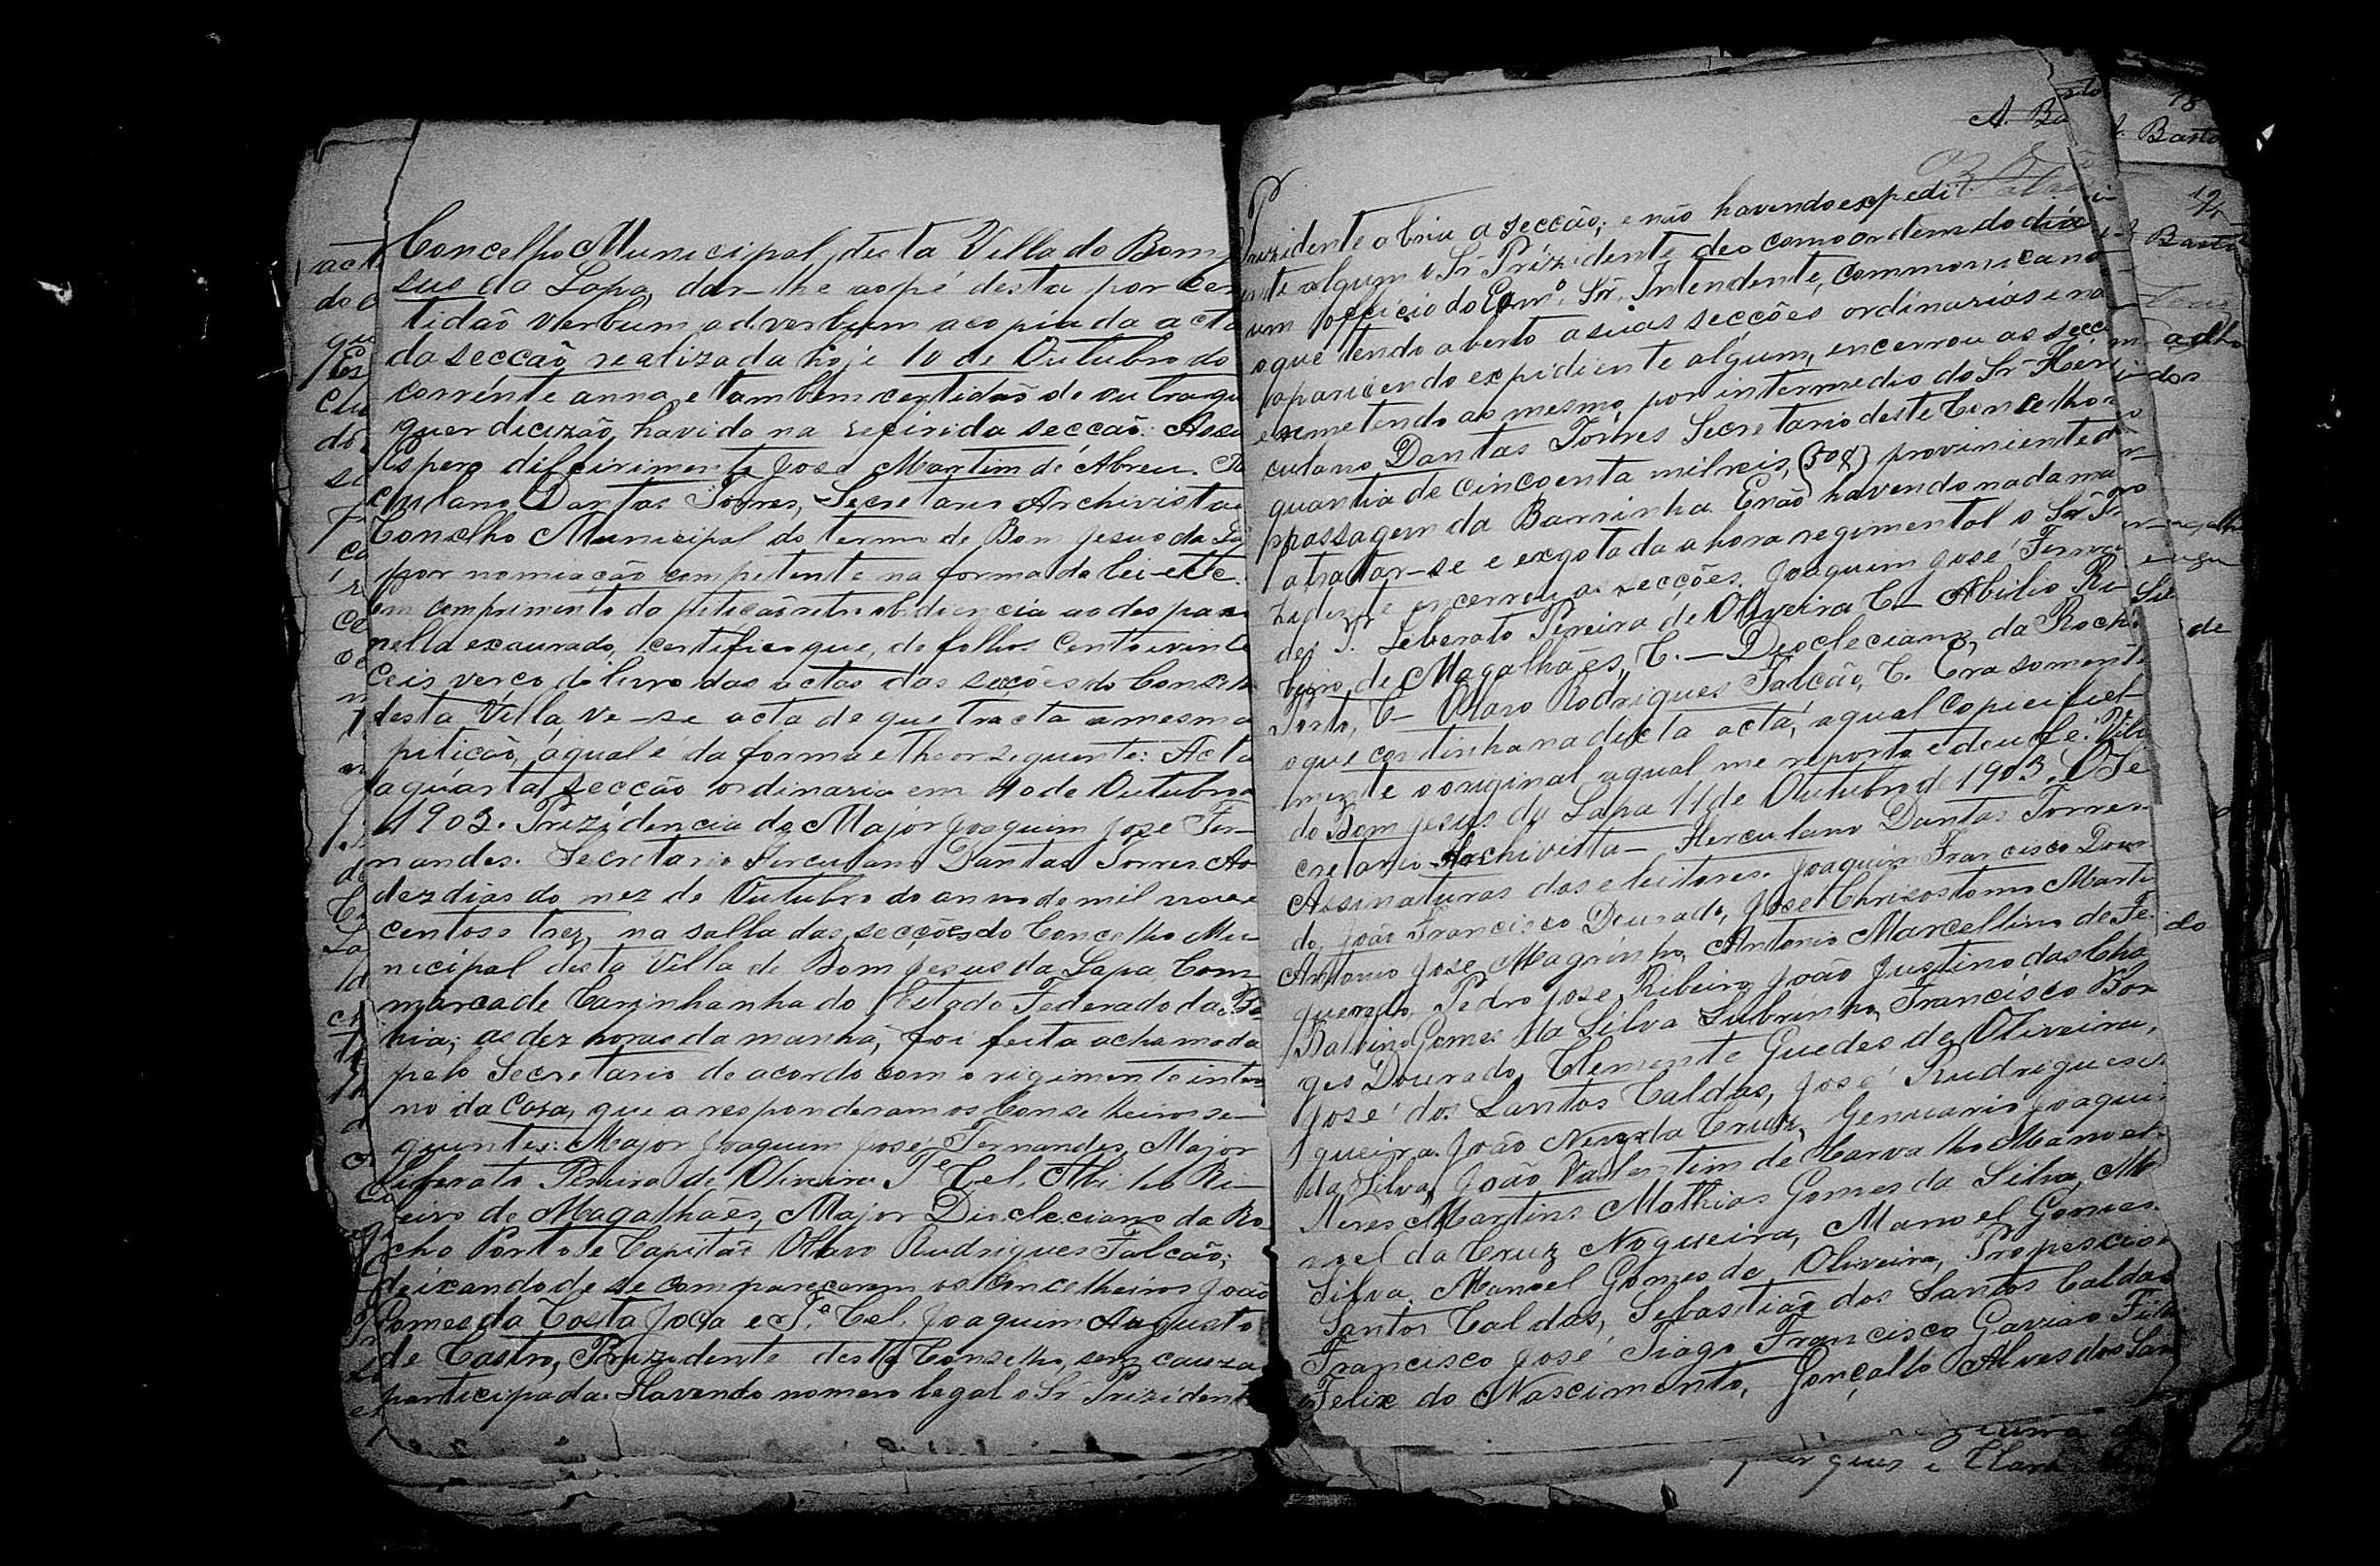 Concelho Municipal, desta Villa do Bom
sus da Lapa, dar-lhe ao pé desta por cer
tidão verbum adverbum a copia da acta
da secção realizada hoje 10 de Outubro do
corrente anno, e tambem certidão de outra qu
quer dicizão havida na referida secção. Assi
Espera diferimento José Martim de Abreu.
culano Dantas Torres, Secretario Archivista
Conselho Municipal do termo de Bom Jesus da La
por nomiação competente na forma da lei-ett.
Em comprimento da petição retro obdiencia ao despaxo
nella exaurado, certifico que, de folhas cento e vinte
ceis verço do livro das actas das secções do Conselho
desta Villa, ve-se acta de que tracta a mesma
pitição, aqual é da forma e theor seguinte: Acta
aquarta secção ordinaria em 10 de Outubro
1903. Prezidencia do Major Joaquim José Fer-
nandes. Secretario Herculano Dantas Torres. Ao
dez dias do mez de Outubro do anno de mil nove
centos e trez, na salla das secções do Concelho Mu-
nicipal desta Villa de Bom Jesus da Lapa, Com-
marca de Carinhanha do Estado Federado da Ba-
hia; as dez horas da manhã, foi feita achamada
pelo Secretario de acordo com o rigimento inter
no da Caza, que a responderam os Conselheiros se-
guintes: Major Joaquim José Fernandes, Major
Liberato Pereira de Oliveira Te Cel. Abilio Ri-
beiro de Magalhães, Major Diocleciano da Ro-
cha Porto e Capitão Olavo Rudrigues Falcão;
deixando de se comparecerem os Concelheiros João
Gomes da Costa Joca e Te Cel. Joaquim Augusto
de Castro, Prezidente deste Conselho, sem cauza
participada. Havendo nomero legal o Sr Prizidente
A. Ba
Prezidente abriu a secção; e não havendo expedi
ente algum o Sr Prizidente deo como ordem do dia
um officio do Exmo Sr. Intendente, communicand
o que tendo aberto a suas secções ordinarias e na
aparicendo expidiente algum, encerrou as secç
e remetendo ao mesmo, por intermedio do Sr Her
culano Dantas Torres Secretario deste Concelho a
quantia de cincoenta milreis, (50$) proviniente d
passagem da Barrinha. E não havendo nada ma
atratar-se e exgotada a hora regimental o Sr Pr
zidente encerrou as secções. Joaquim José Ferna
des P. Leberato Pereira de Oliveira C- Abilio Ri
beiro de Magalhães, C.- Deoclecianno da Rocha
Porto, C- Olavo Rodrigues Falcão, C. Era somente
o que continha na dicta acta, aqual copiei fiel-
mente o original aqual me reporto e dou fé. Villa
do Bom Jesus da Lapa 11 de Outubro de 1903. O Se
cretario Archivista- Herculano Dantas Torres.
Assinaturas dos eleitores. Joaquim Francisco Dour
do, João Francisco Dourado, José Chrisostomo Marti
Antonio José Magrinho, Antonio Marcellino de Fe
queredo, Pedro José Ribeiro, João Justino das Cha
Balbino Gomes da Silva Subrinho, Francisco Bor
ges Dourado, Clemente Guedes de Oliveira,
José dos Santos Caldas, José Rudrigues
queira. João Nery da Cruz, Genuario Joaqui
da Silva, João Vallentim de Carvalho Manoel
Neres Martins Mathias Gomes da Silva, Ma
noel da Cruz Nogueira, Manoel Gomes
Silva. Manoel Gomes de Oliveira,
Santos Caldas, Sebastião dos Santos Caldas
Francisco José Tiago Francisco Gavião Filho
Felix do Nascimento, Gonçallo Alves dos San